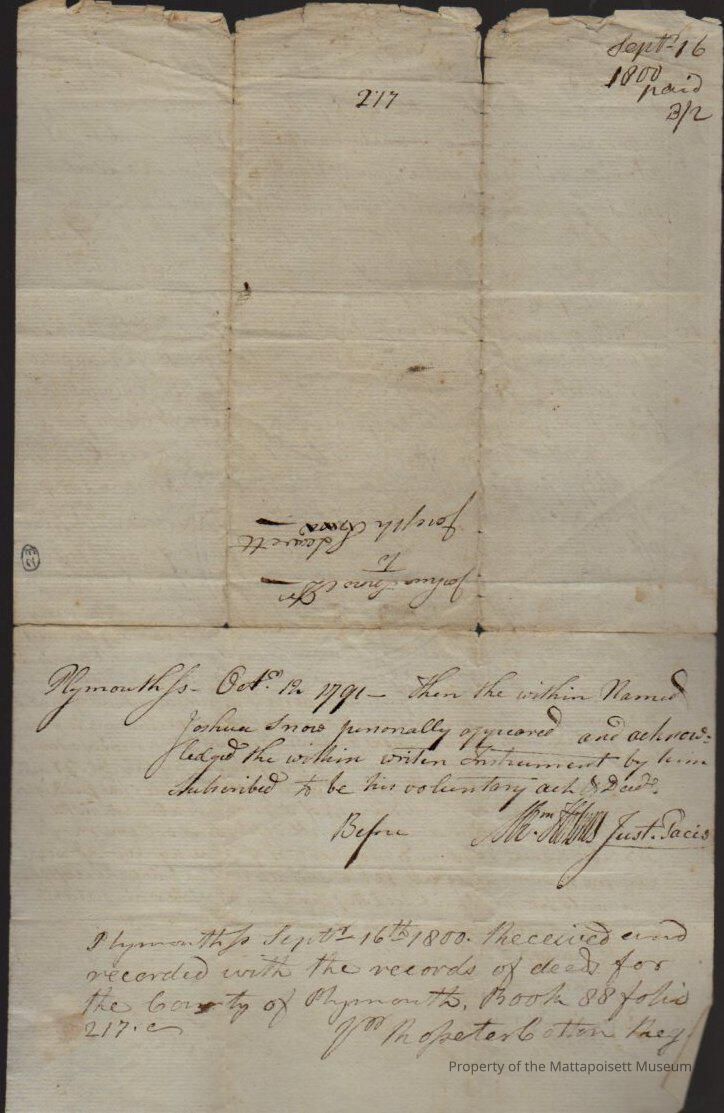 Septr. 16
1800
paid
3/2
217
Joshua Snow
to
Joseph Snow
33
Plymouth ss - Octr. 12 1791 - then the within Named
Joshua Snow personally appeared and acknow=
ledged the within writen Instrument by him
Subscribed to be his voluntary act & Deed.
Before Abm. Holmes Just. Pacis
Plymouth ss Septr. 16th 1800. Received and
recorded with the records of deeds for
the County of Plymouth, Book 88 folio
217. &
pr Rosseter Cotton Reg
Property of the Mattapoisett Museum